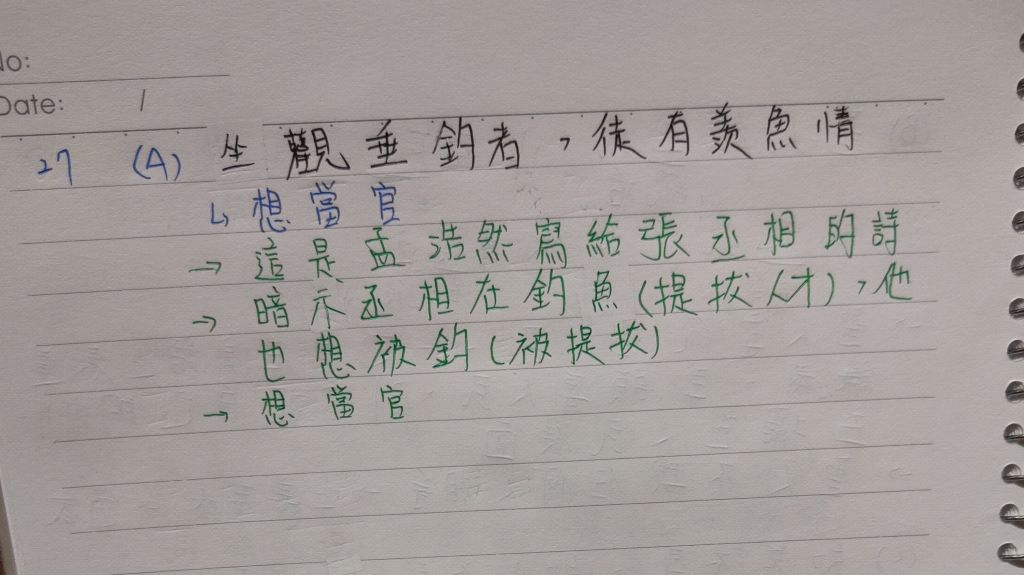 No:
Date: /
27 (A) 坐觀垂釣者，徒有羨魚情
↳ 想當官
→ 這是孟浩然寫給張丞相的詩
→ 暗示丞相在釣魚(提拔人才)，他
也想被釣(被提拔)
→ 想當官